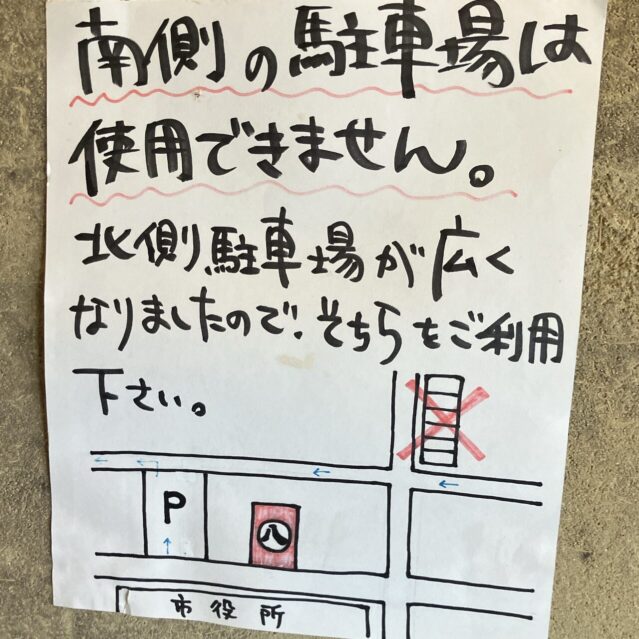 南側の駐車場は
使用できません。
北側駐車場が広く
なりましたので、そちらをご利用
下さい。
P
八
市役所